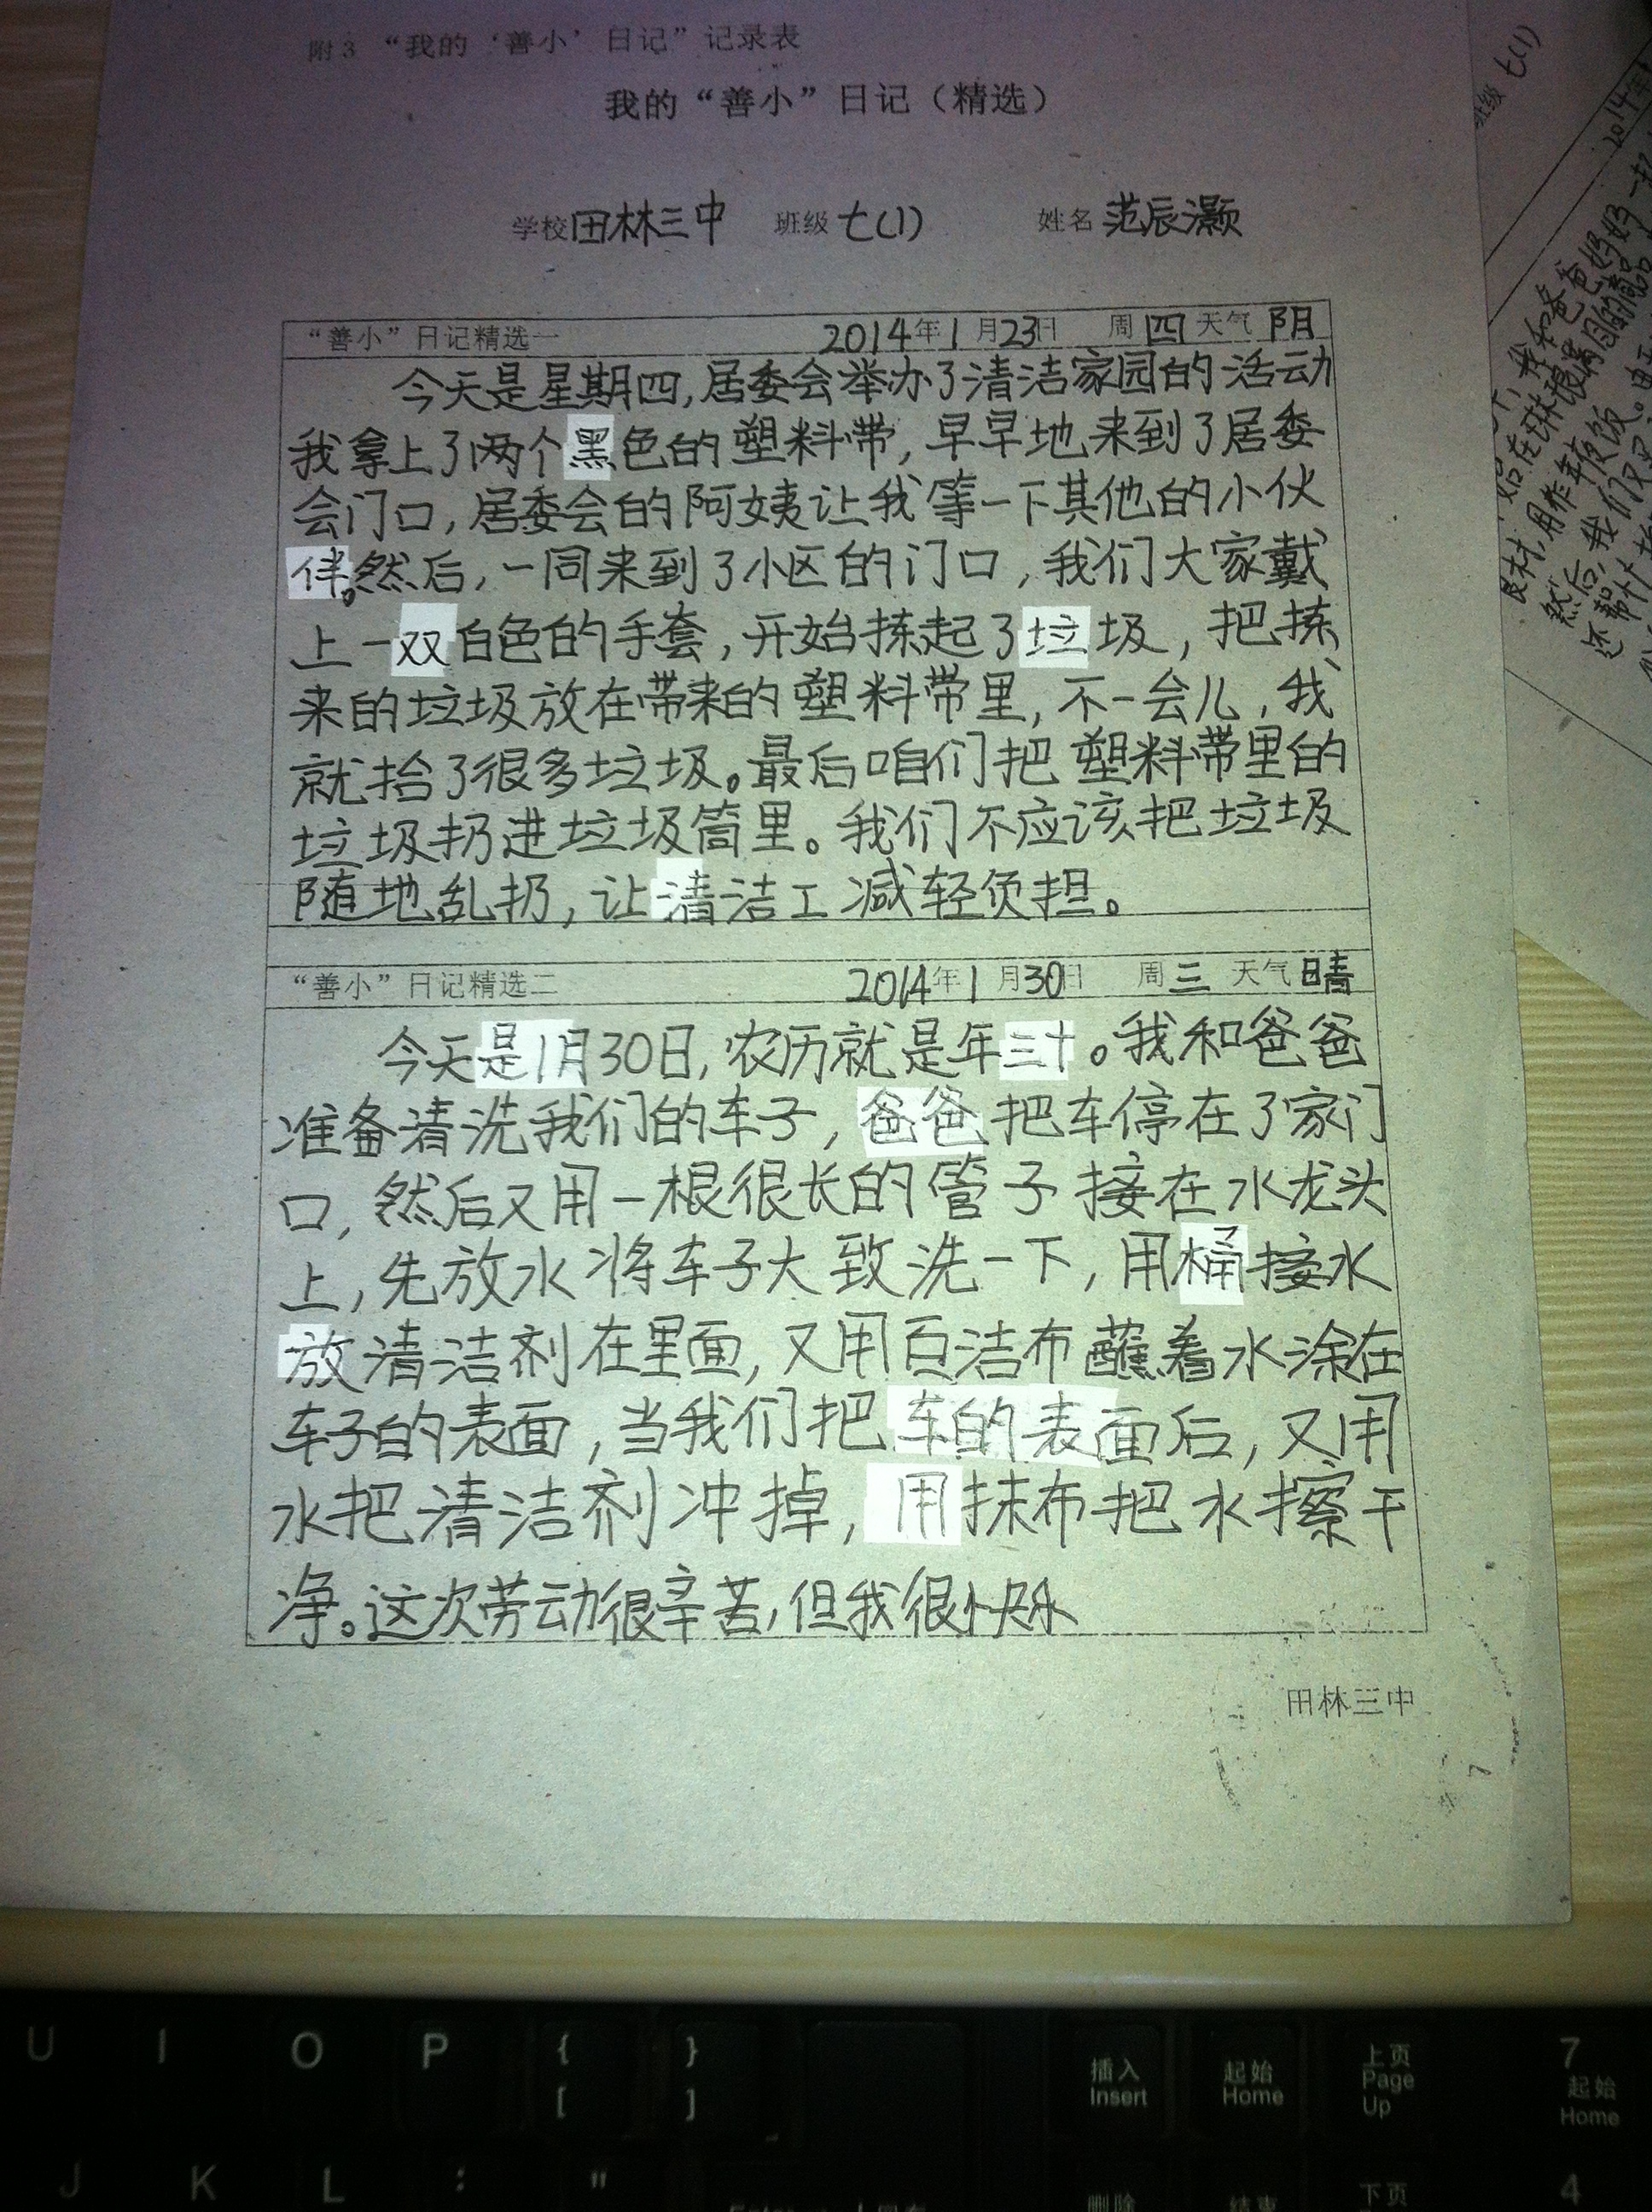 附3 “我的‘善小’日记”记录表
我的“善小”日记（精选）
学校田林三中 班级七(1) 姓名范辰灏
“善小”日记精选一 2014年1月23日 周四天气阴
今天是星期四,居委会举办了清洁家园的活动
我拿上了两个黑色的塑料带,早早地来到了居委
会门口,居委会的阿姨让我等一下其他的小伙
伴。然后,一同来到了小区的门口,我们大家戴
上一双白色的手套,开始拣起了垃圾,把拣
来的垃圾放在带来的塑料带里,不一会儿,我
就拾了很多垃圾。最后咱们把塑料带里的
垃圾扔进垃圾筒里。我们不应该把垃圾
随地乱扔,让清洁工减轻负担。
“善小”日记精选二 2014年1月30日 周三天气晴
今天是1月30日,农历就是年三十。我和爸爸
准备清洗我们的车子,爸爸把车停在了家门
口,然后又用一根很长的管子接在水龙头
上,先放水将车子大致洗一下,用桶接水
放清洁剂在里面,又用百洁布蘸着水涂在
车子的表面,当我们把车的表面后,又用
水把清洁剂冲掉,用抹布把水擦干
净。这次劳动很辛苦,但我很快乐
田林三中
班级 七(1)
2014年
我和爸爸好好一
琳琅满目的商品
食材,用作年夜饭。由于
然后,我们又
还帮忙
U I O P { [ } ]
插入 Insert
起始 Home
上页 Page Up
7 起始 Home
J K L : "
删除
结束
下页
4